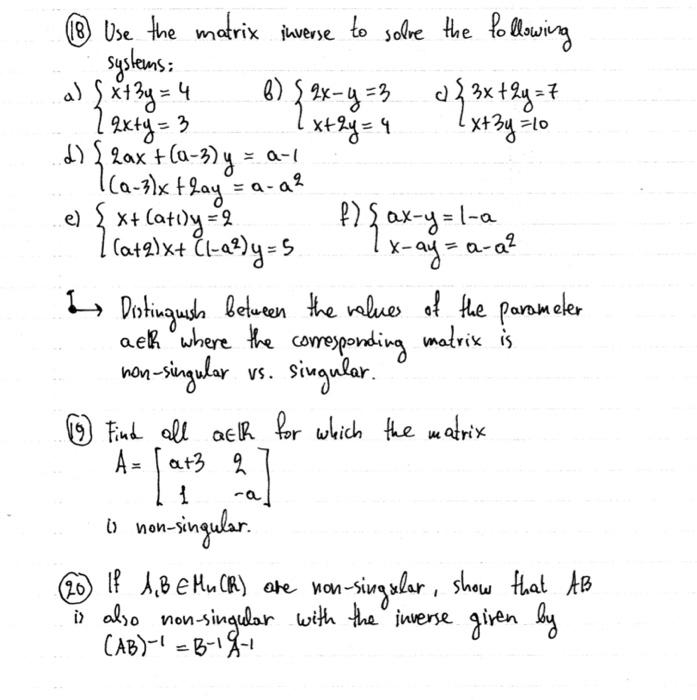 (18) Use the matrix inverse to solve the following
systems:
a) { x+3y = 4 b) { 2x-y = 3 c) { 3x+2y = 7
2x+y = 3 x+2y = 4 x+3y = 10
d) { 2ax + (a-3)y = a-1
(a-3)x + 2ay = a-a²
e) { x+(a+1)y = 2 f) { ax-y = 1-a
(a+2)x + (1-a²)y = 5 x-ay = a-a²
↳ Distinguish between the values of the parameter
a∈ℝ where the corresponding matrix is
non-singular vs. singular.
(19) Find all a∈ℝ for which the matrix
A = [ a+3 2
1 -a ]
is non-singular.
(20) If A,B ∈ Mn(ℝ) are non-singular, show that AB
is also non-singular with the inverse given by
(AB)⁻¹ = B⁻¹A⁻¹